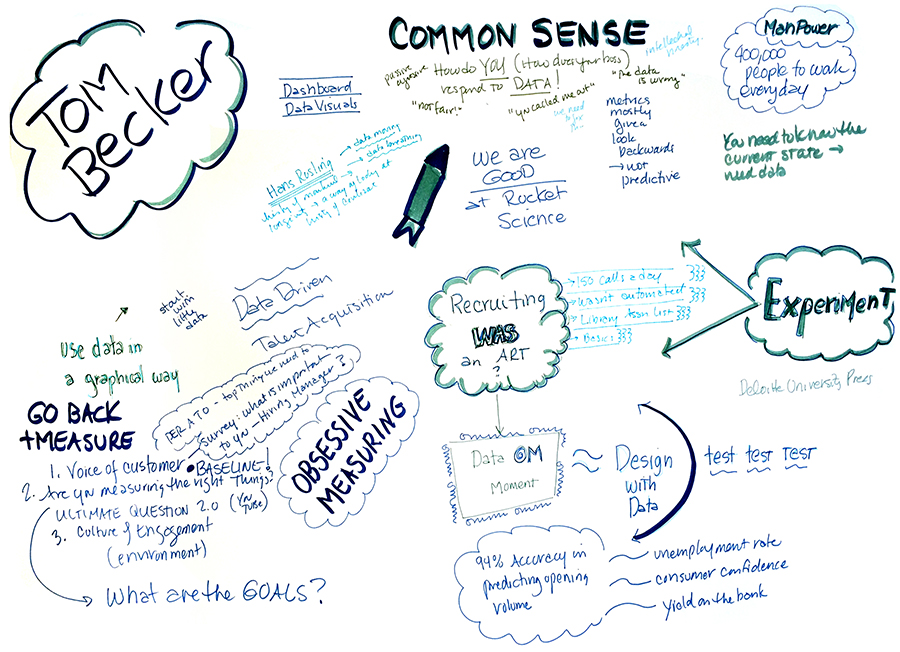 TOM
Becker
COMMON SENSE
passive
agressive
How do YOU (How does your boss)
respond to DATA!
"not fair!"
"you called me out"
"The data
is wrong"
intellectual
Dashboard
Data Visuals
metrics
mostly
give a
look
backwards
→ not
predictive
ManPower
400,000
people to work
everyday
You need to know the
current state →
need data
Hans Rosling
→ data moving
→ data
we are
GOOD
at Rocket
Science
start
with
little
data
Data Driven
Talent Acquisition
use data in
a graphical way
Recruiting
WAS
an ART
?
→ 150 calls a day
→ wasn't automated
→ Library Assn List
→ Basic
Experiment
Deloitte University Press
GO BACK
+ MEASURE
1. Voice of customer • BASELINE!
2. Are you measuring the right things?
ULTIMATE QUESTION 2.0
3. Culture of Engagement
(environment)
What are the GOALS?
DERATO - top thing we need to
survey: what is important
to you - Hiring Manager?
OBSESSIVE
MEASURING
Data OM
Moment
Design
with
Data
test test TEST
94% Accuracy in
predicting opening
volume
unemployment rate
consumer confidence
yield on the bank